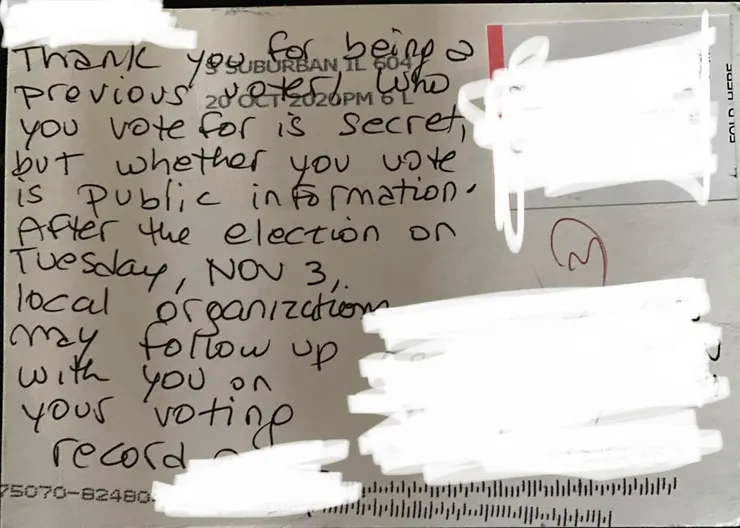 Thank you for being a
S SUBURBAN IL 604
previous voter! Who
20 OCT 2020PM 6 L
you vote for is secret,
but whether you vote
is public information.
After the election on
Tuesday, NOV 3,
local organizations
may follow up
with you on
your voting
record
75070-82480
FOLD HERE
3